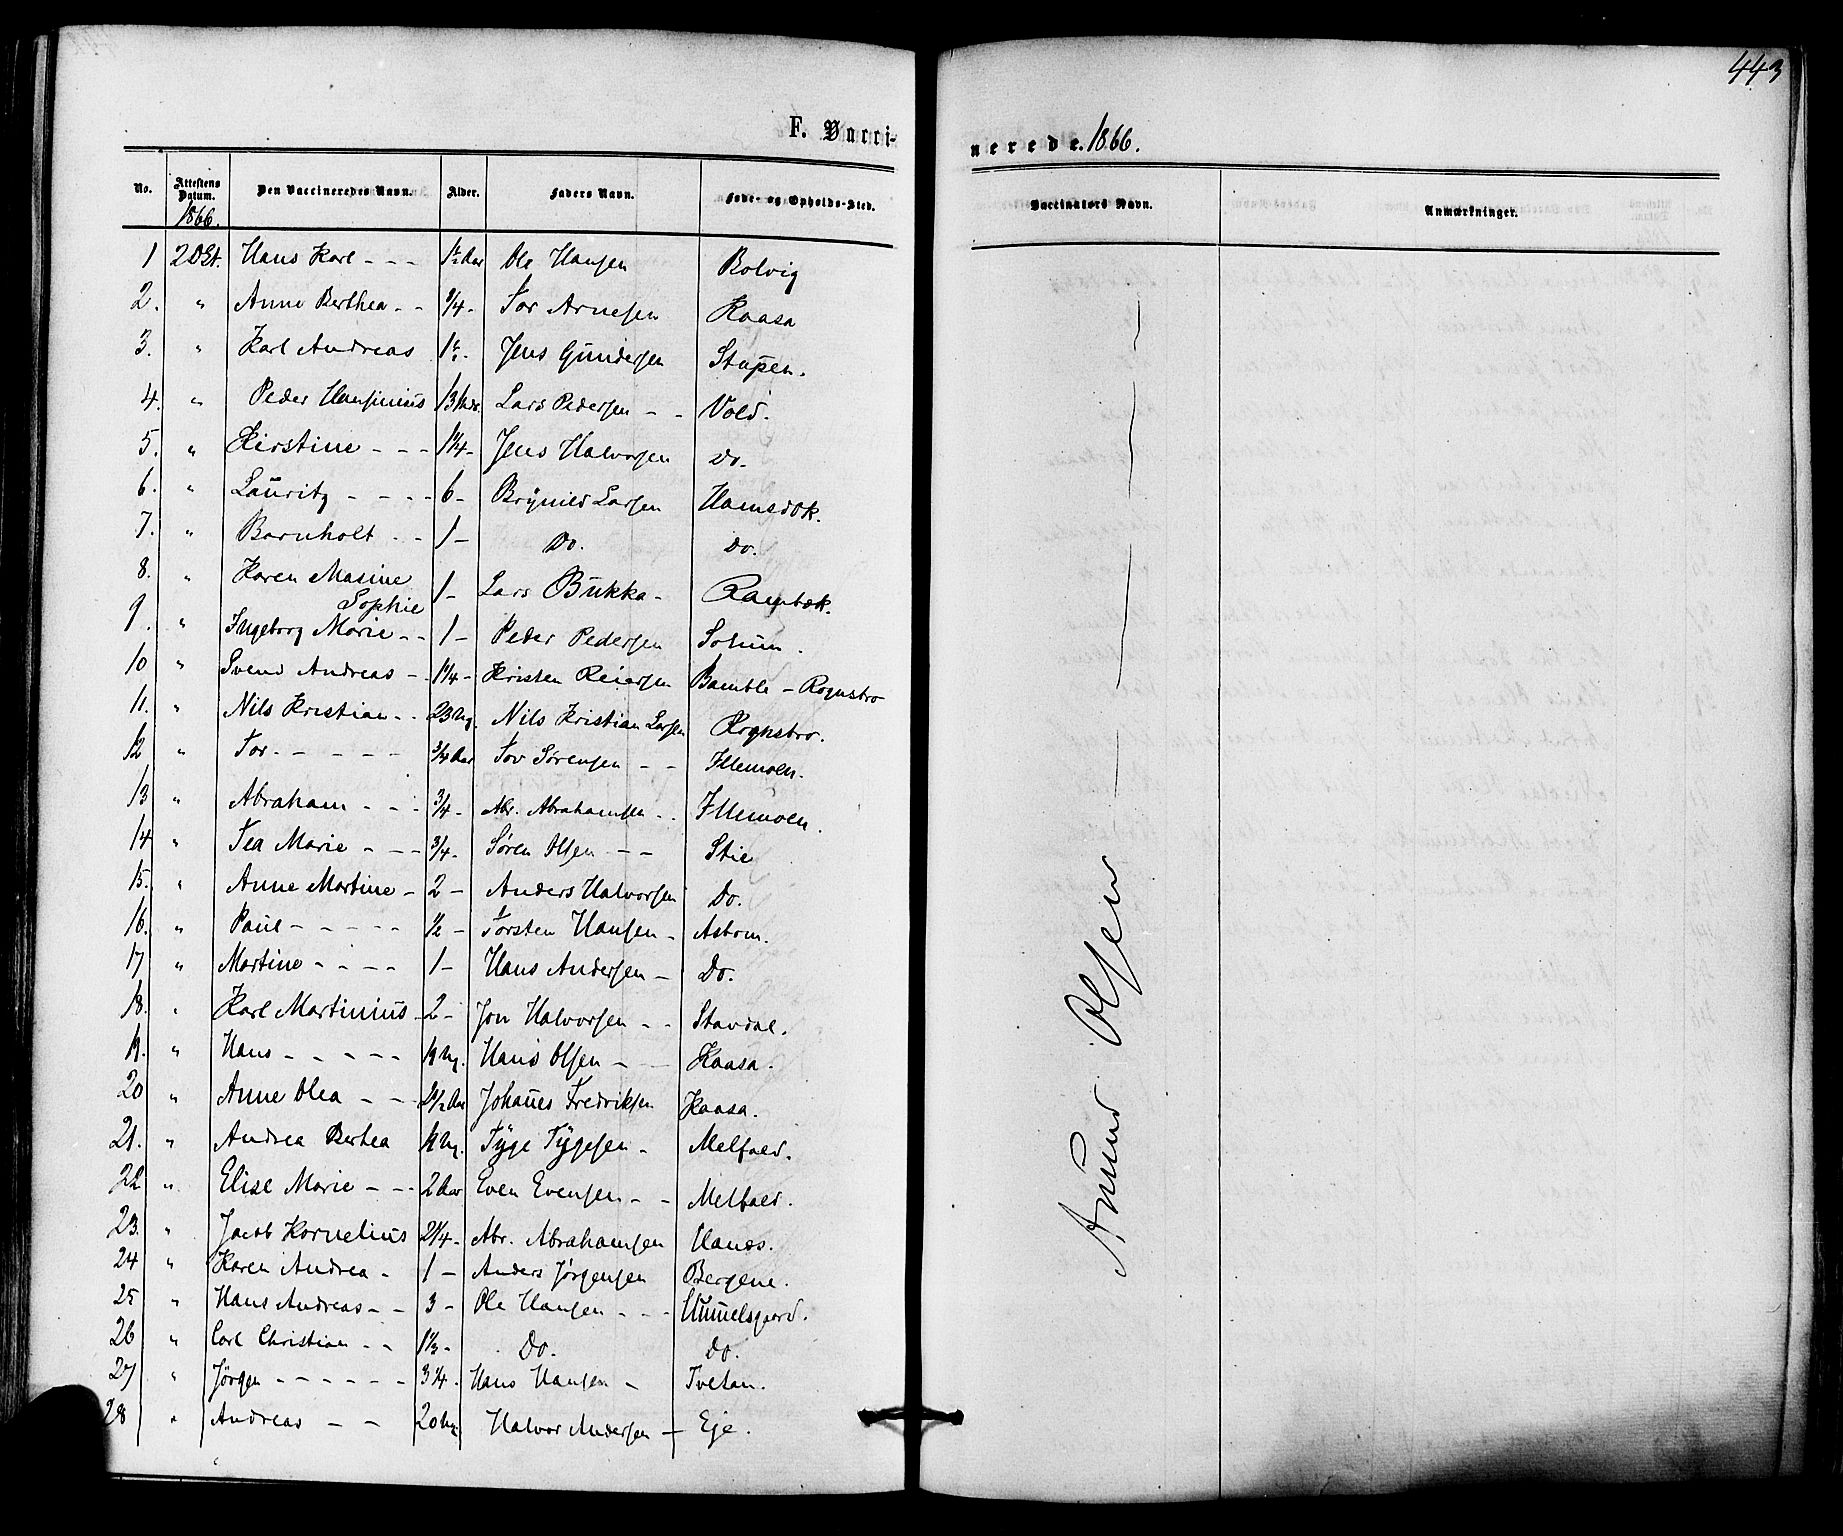 443
F. Vacci-
nerede. 1866.
No. Attestens Datum. 1866. Den Vaccineredes Navn. Alder. Faders Navn. Føde- og Opholds-Sted. Vaccinators Navn. Anmærkninger.
1 2 Hans Karl - - - 1½ Aar Ole Hansen Bolvig
2. " Anne Berthea - - ¾ - Tor Arnesen Kaasa
3. " Karl Andreas Jens Gundersen Stupen.
4. " Peder Hansinius 13 Lars Pedersen - - Vold.
5. " Kirstine - - - 1¼ - Jens Halvorsen Do.
6. " Lauritz - - - - 6 - Brynild Larsen
7. " Barnholt - - 1 - Do. Do.
8. " Karen Masine Sophie 1 - Lars Bukka -
9. " Ingeborg Marie - - 1 - Peder Pedersen Solum.
10 " Svend Andreas - 1¼ - Kristen Reiersen Bamble - Rognsbro
11. " Nils Kristian - - 23 Nils Kristian Larsen Rognsbro.
12 " Tov - - - - - ¾ Aar Tov Sørensen - - Illemoen.
13 " Abraham - - - ¾ - Abr. Abrahamsen - - Illemoen.
14 " Tea Marie - - - ¾ - Søren Olsen - - Stie
15. " Anne Martine - 2 - Anders Halvorsen Do.
16. " Paul - - - - - ½ - Torsten Hansen - Aabom.
17 " Martine - - - - 1 - Hans Andersen - Do.
18. " Karl Martinius - 2 - Jon Halvorsen - - Stavdal.
19. " Hans - - - - - Hans Olsen - Kaasa.
20 " Anne Olea - - - Aar Johanes Fredriksen Kaasa.
21. " Andrea Berthea Tyge Tygesen - Melfald.
22 " Elise Marie - - - 2 Aar Even Evensen - - Melfald.
23. " Jacob Kornelius 2¼ - Abr. Abrahamsen
24 " Karen Andrea - 1 - Anders Jørgensen Bergene.
25 " Hans Andreas - - 3 - Ole Hansen - - - Hummelsgaard.
26 " Carl Christian - - 1⅓ - Do. Do.
27 " Jørgen - - - - - - 3¼ - Hans Hansen - Tvetan.
28 " Andreas - - 20 Halvor Andersen - Eje.
Anund Olsen